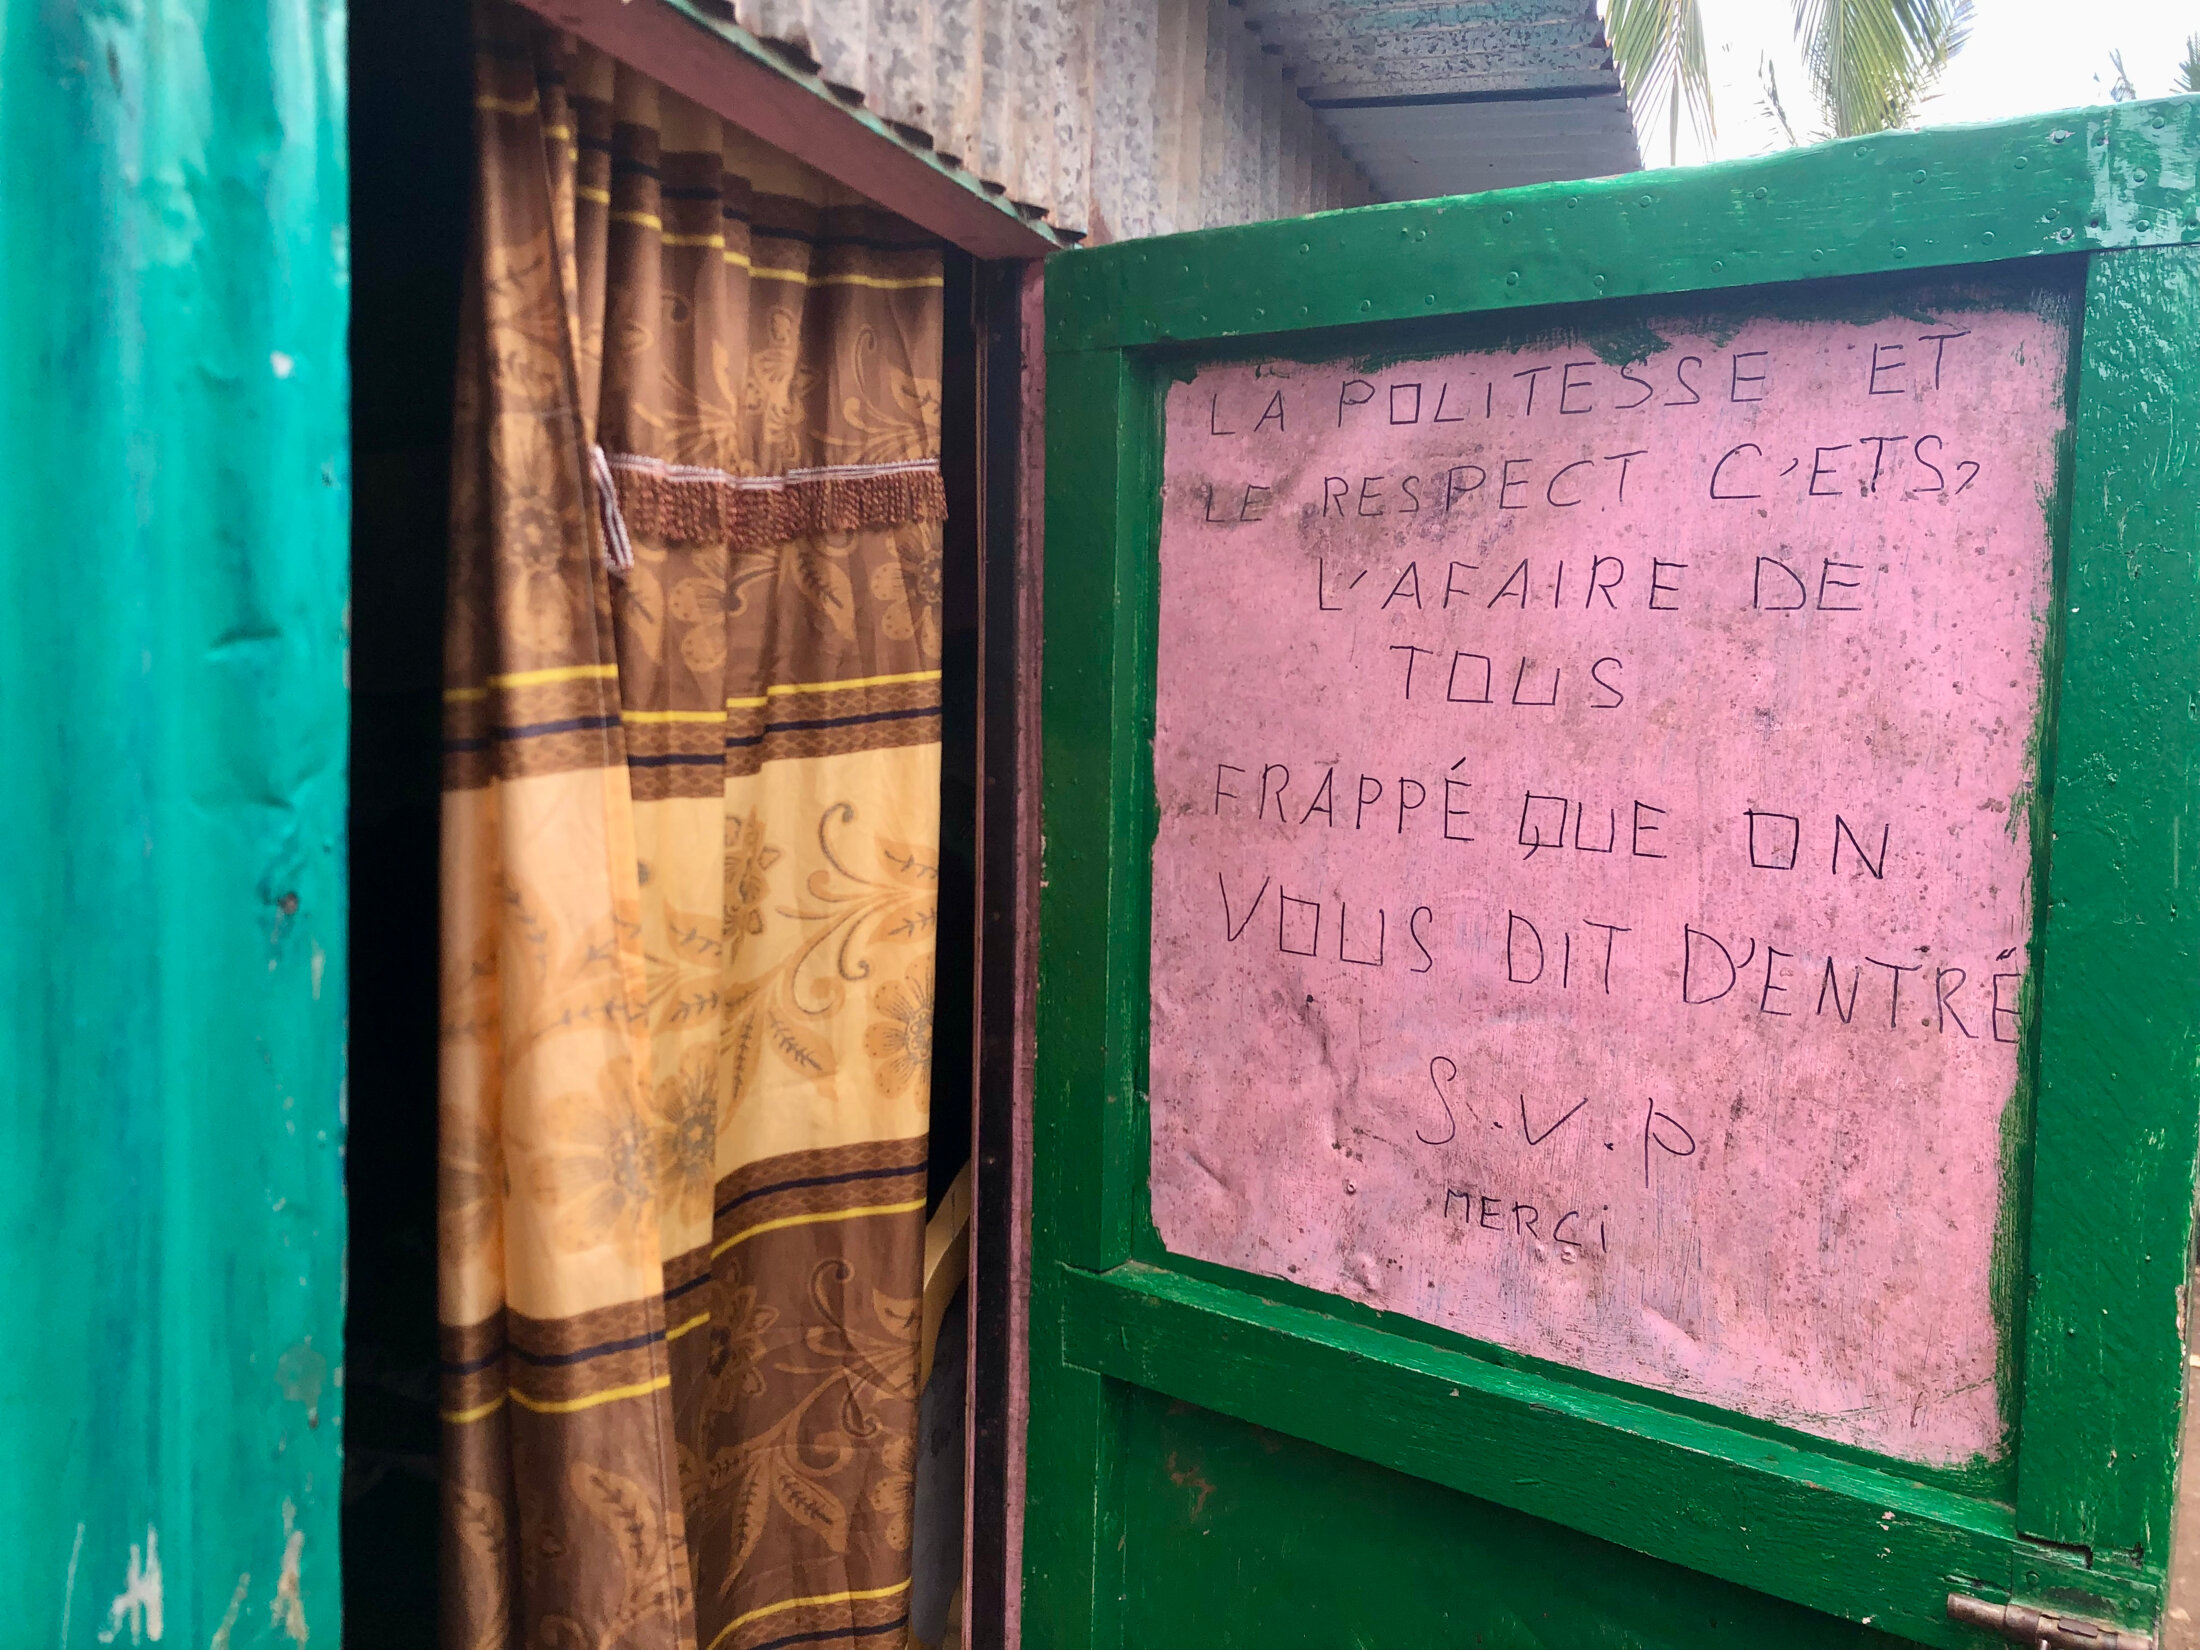 LA POLITESSE ET
LE RESPECT C'ETS,
L'AFAIRE DE
TOUS
FRAPPÉ QUE ON
VOUS DIT D'ENTRÉ
S.V.P
MERCi